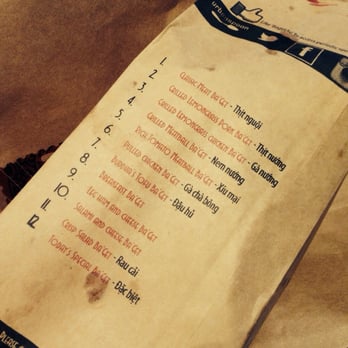 urban
1. Classic Meat Ba'Get - Thịt nguội
2. Grilled Lemongrass Pork Ba'Get - Thịt nướng
3. Grilled Lemongrass Chicken Ba'Get - Gà nướng
4. Grilled Meatball Ba'Get - Nem nướng
5. Tomato Meatball Ba'Get - Xíu mại
6. Pulled Chicken Ba'Get - Gà chà bông
7. Tofu Ba'Get - Đậu hủ
8. Breakfast Ba'Get
9. and cheese Ba'Get
10. Salami and cheese Ba'Get
11. Crisp Salad Ba'Get - Rau cải
12. Today's Special Ba'Get - Đặc biệt
Please